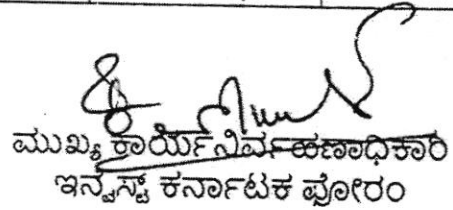 ಮುಖ್ಯ ಕಾರ್ಯನಿರ್ವಹಣಾಧಿಕಾರಿ
ಇನ್ವೆಸ್ಟ್ ಕರ್ನಾಟಕ ಫೋರಂ